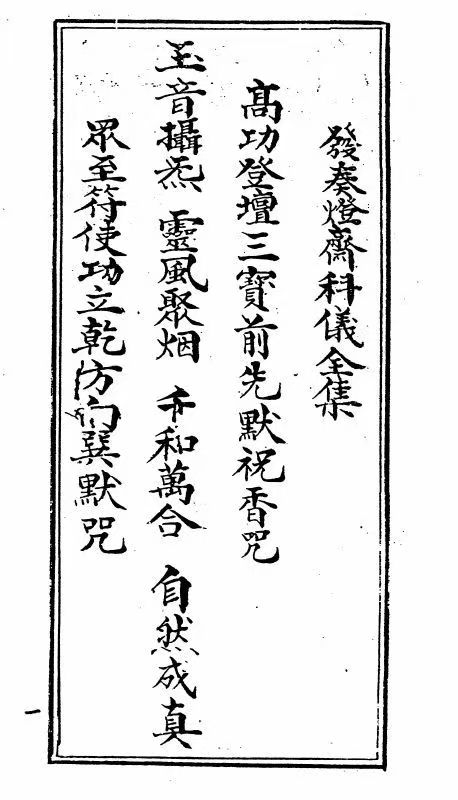 發奏燈齋科儀全集
高功登壇三寳前先默祝香咒
玉音攝炁 靈風聚烟 千和萬合 自然成真
眾至符使功立乾方向巽默咒
一